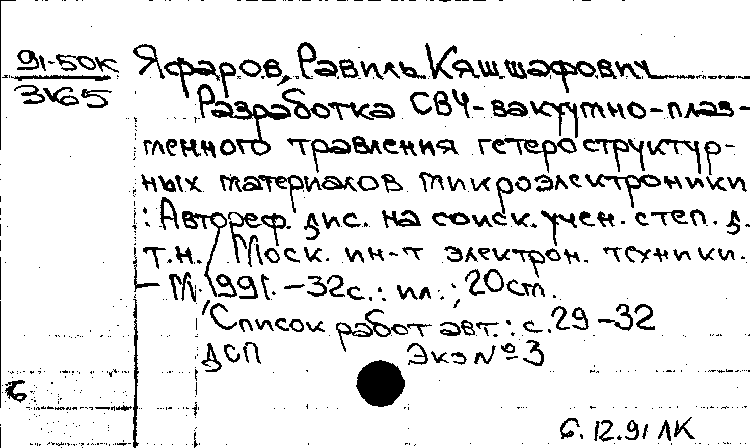 91-50к Яфаров, Равиль Кяшшафович
3165 Разработка СВЧ-вакуумно-плаз-
менного травления гетероструктур-
ных материалов микроэлектроники
: Автореф. дис. на соиск. учен. степ. д.
т.н. / Моск. ин-т электрон. техники.
- М. 1991. - 32с. : ил.; 20 см.
Список работ авт.: с. 29-32
ДСП Экз № 3
6
6.12.91 ЛК